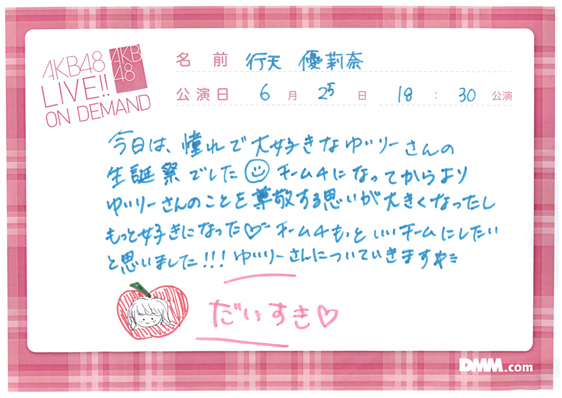 AKB48
LIVE!!
ON DEMAND
AKB
48
名前 行天 優莉奈
公演日 6月 25日 18:30 公演
今日は、憧れで大好きなゆいりーさんの
生誕祭でした チーム4になってからより
ゆいりーさんのことを尊敬する思いが大きくなったし
もっと好きになった♡ チーム4もっといいチームにしたい
と思いました!!! ゆいりーさんについていきます
だいすき♡
DMM.com